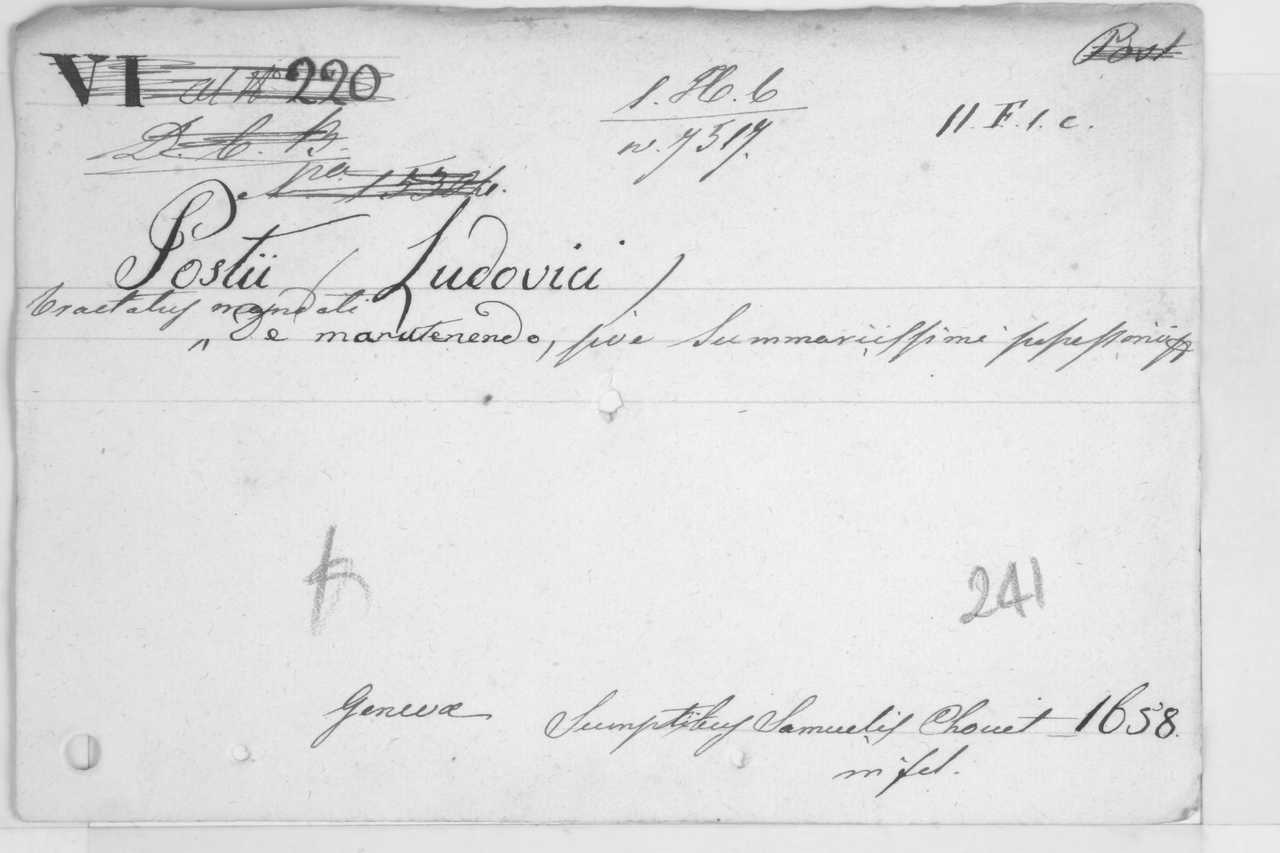 Post
VI ad N° 220
1. H. b
11. F. 1. c.
D. C. B.
n. 7517.
Postii / Ludovici /
tractatus mandati
„ De manutenendo, sive Summariissimi possessorii
241
Genevæ Sumptibus Samuelis Chouet 1658.
in fol.